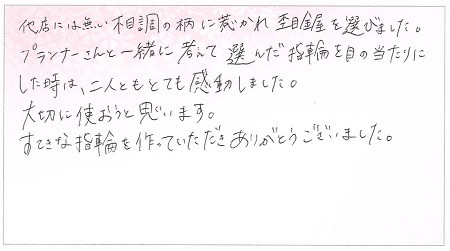 他店には無い木目調の柄に惹かれ杢目金屋を選びました。
プランナーさんと一緒に考えて選んだ指輪を目の当たりに
した時は、二人ともとても感動しました。
大切に使おうと思います。
すてきな指輪を作っていただきありがとうございました。